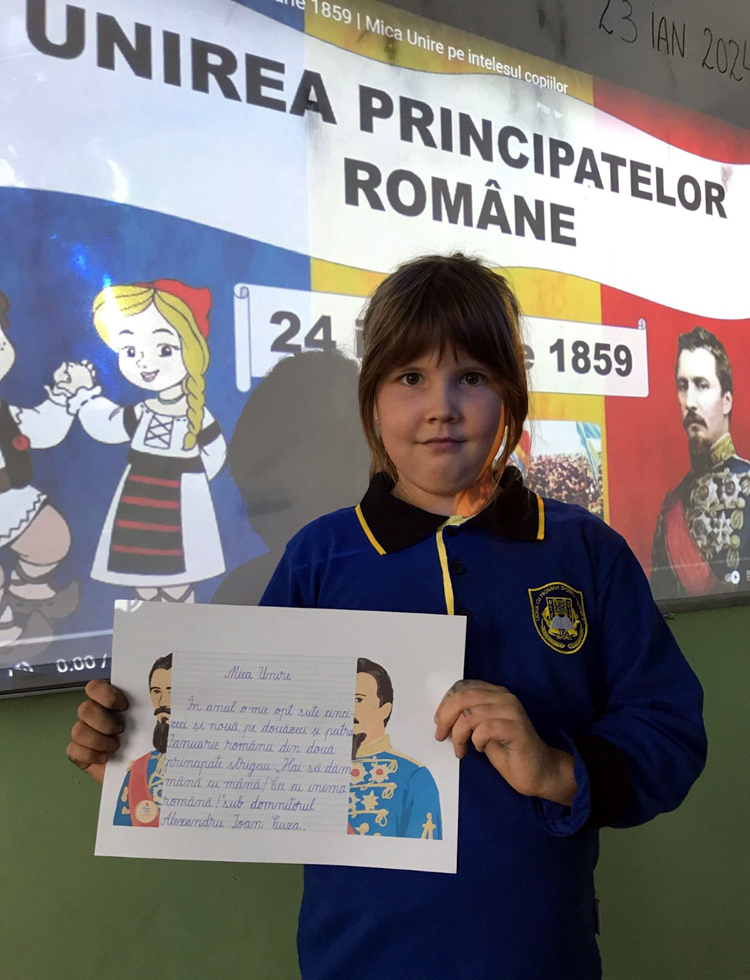 1859 | Mica Unire pe intelesul copiilor
23 IAN. 2024
UNIREA PRINCIPATELOR
ROMÂNE
24
1859
0:00 /
Mica Unire
În anul o mie opt sute cinci
zeci și nouă, pe douăzeci și patru
Ianuarie românii din două
prinapate strigau „Hai să dăm
mână cu mână/Cei cu inima
română!" sub domnitorul
Alexandru Ioan Cuza.